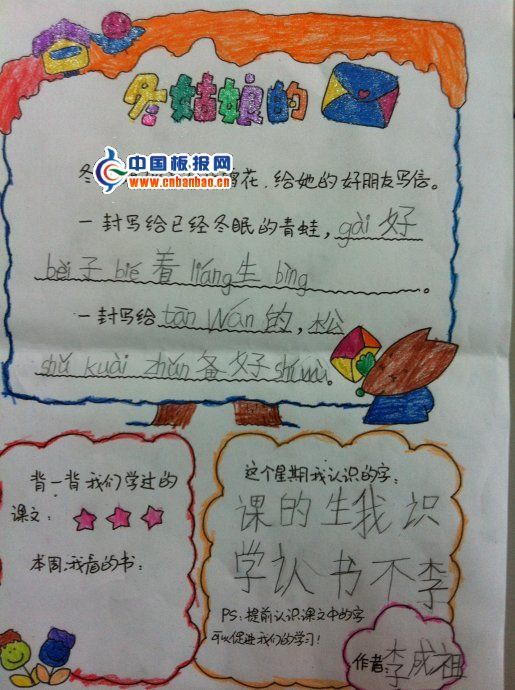 冬姑娘的
中国板报网
www.cnbanbao.cn
冬 花,给她的好朋友写信。
一封写给已经冬眠的青蛙,gài 好
bèi 子 bié 着 liáng 生 bìng 。
一封写给 tān wán 的,松
shǔ kuài zhǔn 备 好 shí wù。
背一背我们学过的
课文:
本周,我看的书:
这个星期我认识的字:
课的生我识
学认书不李
PS:提前认识课文中的字
可以促进我们的学习!
作者李成祖